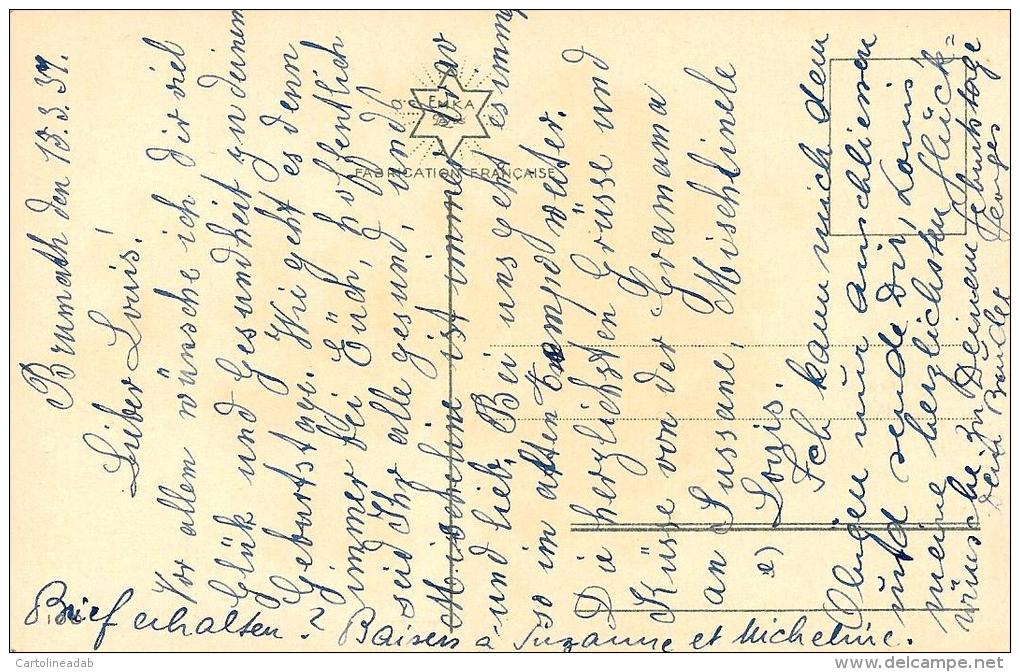 Brumath den 13.3.37.
Lieber Louis!
Vor allem wünsche ich dir viel
Glük und Gesundheit zu deinem
Geburtstage. Wie geht es denn
immer bei Euch, hoffentlich
seid Ihr alle gesund, und
Mischeline ist immer brav
und lieb. Bei uns geht es immer
so im alten Tempo weiter.
Die herzlichsten Grüsse und
Küsse von der Gramama
an Sussane, Mischlinele
e) Louis.
Ich kann mich dem
Obigen nur anschliessen
und sende Dir, Louis,
meine herzlichsten Glück=
wünsche zu Deinem Geburtstage
Dein Bruder
Brief erhalten? Baisers à Suzanne et Micheline.
EMKA
FABRICATION FRANÇAISE
© Cartolineadab
http://www.delcampe.net